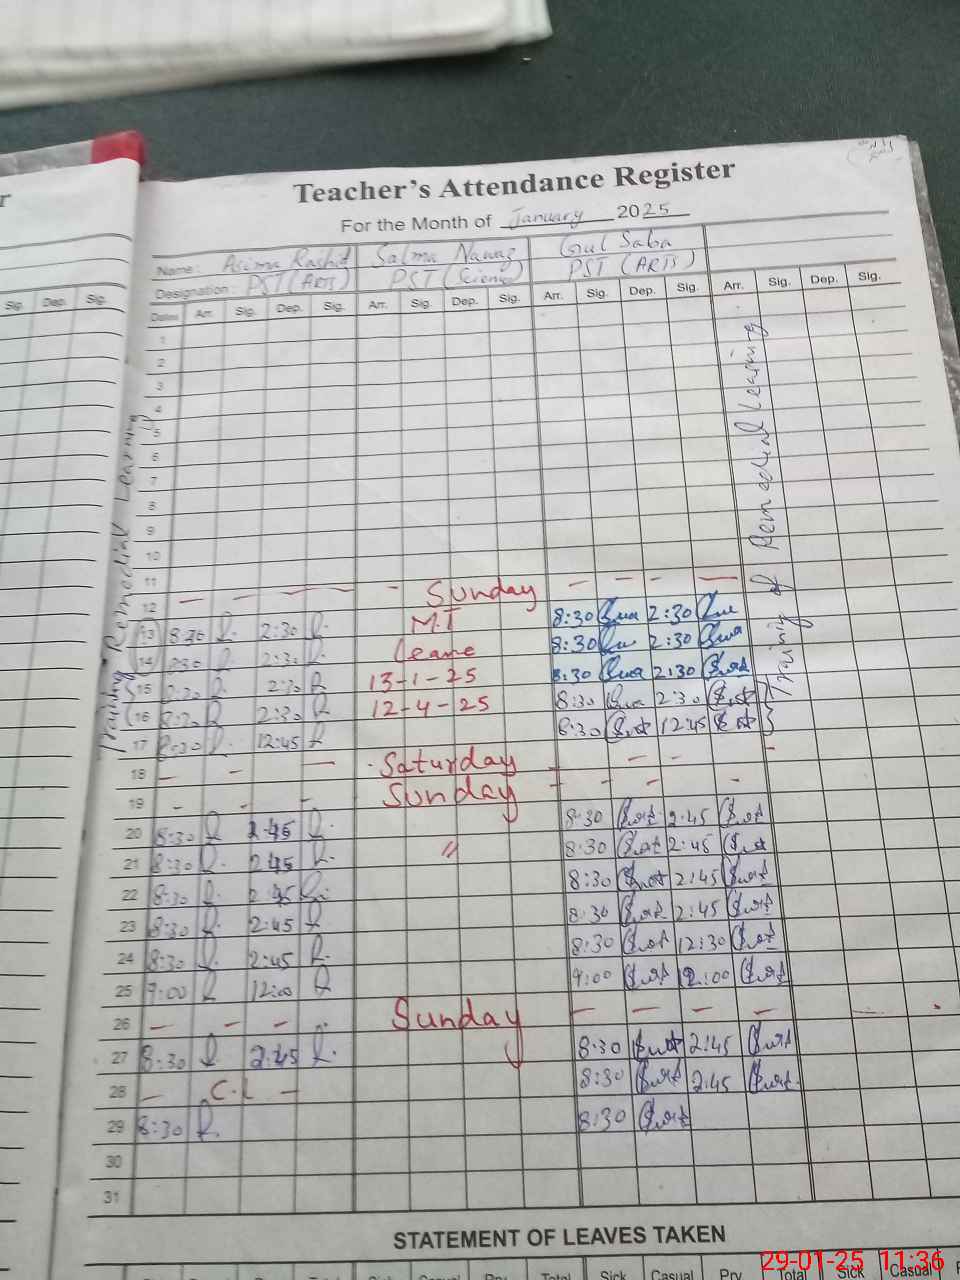 Teacher's Attendance Register
For the Month of January 2025
Name: Asima Rashid Salma Nawaz Gul Saba
Designation: PST (ARTS) PST (Science) PST (ARTS)
Sig. Dep. Sig.
Dates Arr. Sig. Dep. Sig. Arr. Sig. Dep. Sig. Arr. Sig. Dep. Sig. Arr. Sig. Dep. Sig.
1
2
3
4
5
6
7
8
9
10
11
12 — — — - Sunday — — — —
13 8:30 2:30 M.T 8:30 2:30
14 8:30 2:30 leave 8:30 2:30
15 8:30 2:30 13-1-25 8:30 2:30
16 8:30 2:30 12-4-25 8:30 2:30
17 8:30 12:45 8:30 12:45
18 — — — Saturday — — —
19 - - - Sunday - - - -
20 8:30 2:45 8:30 2:45
21 8:30 2:45 〃 8:30 2:45
22 8:30 2:45 8:30 2:45
23 8:30 2:45 8:30 2:45
24 8:30 2:45 8:30 12:30
25 9:00 12:00 9:00 12:00
26 — — — Sunday — — — —
27 8:30 2:45 8:30 2:45
28 — C.L — 8:30 2:45
29 8:30 8:30
30
31
Training Remedial Learning
Training of Remedial Learning
STATEMENT OF LEAVES TAKEN
Total Sick Casual Prv Total Sick Casual
29-01-25 11:36